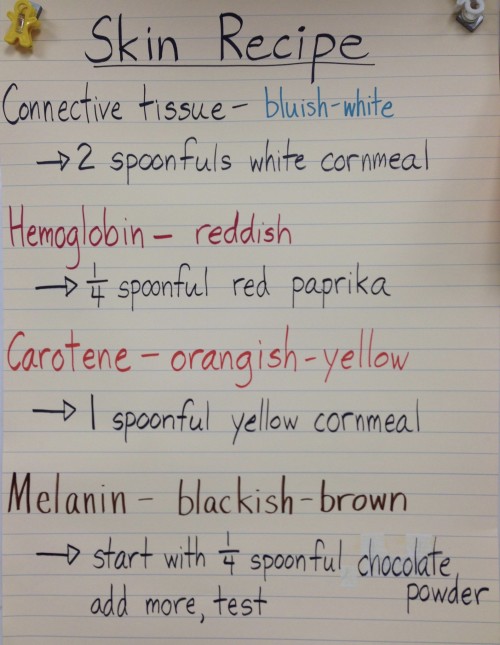 Skin Recipe
Connective tissue - bluish-white
→ 2 spoonfuls white cornmeal
Hemoglobin - reddish
→ 1/4 spoonful red paprika
Carotene - orangish-yellow
→ 1 spoonful yellow cornmeal
Melanin - blackish-brown
→ start with 1/4 spoonful chocolate
powder
add more, test